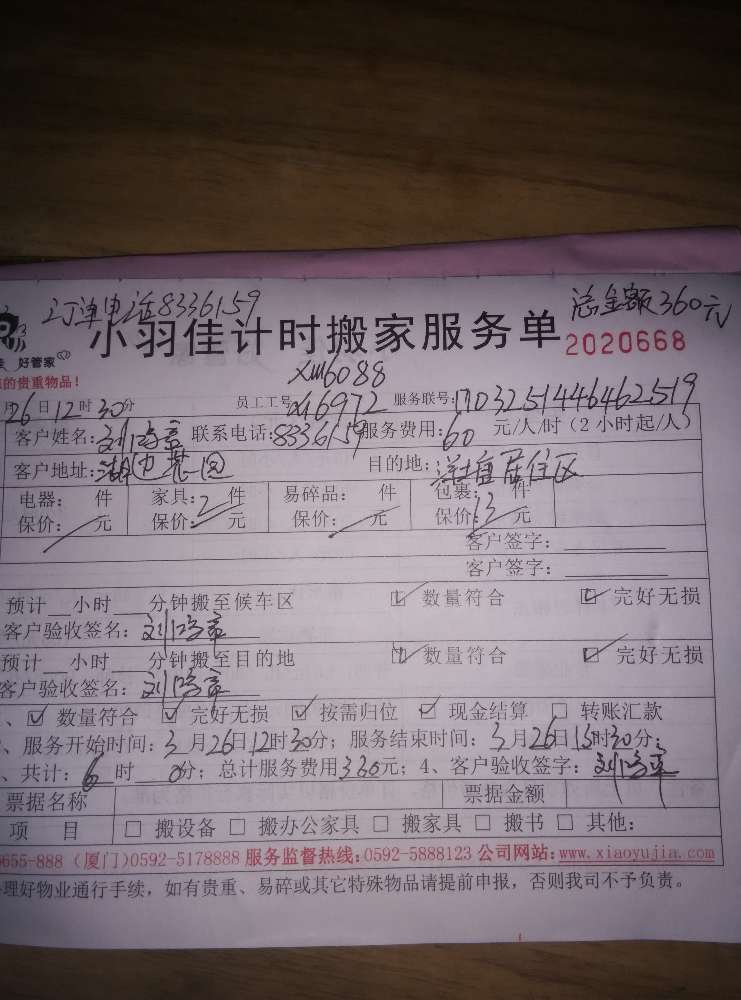 订单电话8336159 总金额360元
小羽佳计时搬家服务单 2020668
好管家
的贵重物品!
xm6088
月26日12时30分 员工工号 xm6972 服务联号:170325144646251​9
客户姓名:刘鸿章 联系电话:8336159 服务费用:60 元/人/时(2小时起/人)
客户地址: 目的地:洋塘居住区
电器: 件 家具:2 件 易碎品: 件 包裹: 件
保价: 元 保价: 元 保价: 元 保价:13 元
客户签字:
客户签字:
预计 小时 分钟搬至候车区 ☑ 数量符合 ☑ 完好无损
客户验收签名:刘鸿章
预计 小时 分钟搬至目的地 ☑ 数量符合 ☑ 完好无损
客户验收签名:刘鸿章
、☑ 数量符合 ☑ 完好无损 ☑ 按需归位 ☑ 现金结算 □ 转账汇款
、服务开始时间:3月26日12时30分;服务结束时间:3月26日15时30分;
、共计:6时 0分;总计服务费用360元;4、客户验收签字:刘鸿章
票据名称 票据金额
项 目 □ 搬设备 □ 搬办公家具 □ 搬家具 □ 搬书 □ 其他:
0655-888(厦门)0592-5178888 服务监督热线:0592-5888123 公司网站:www.xiaoyujia.com
理好物业通行手续,如有贵重、易碎或其它特殊物品请提前申报,否则我司不予负责。